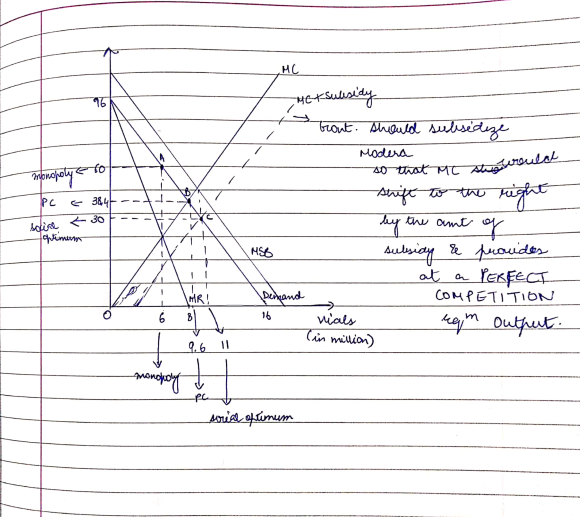 MC
MC + Subsidy
→ Govt. should subsidize
Moderna
so that MC would
shift to the right
by the amt of
subsidy & provides
at a PERFECT
COMPETITION
eqm output.
96
monopoly ← 60
PC ← 38.4
social optimum ← 30
A
B
C
MSB
MR
Demand
0
6
8
16
vials
(in million)
9.6
11
monopoly
PC
social optimum